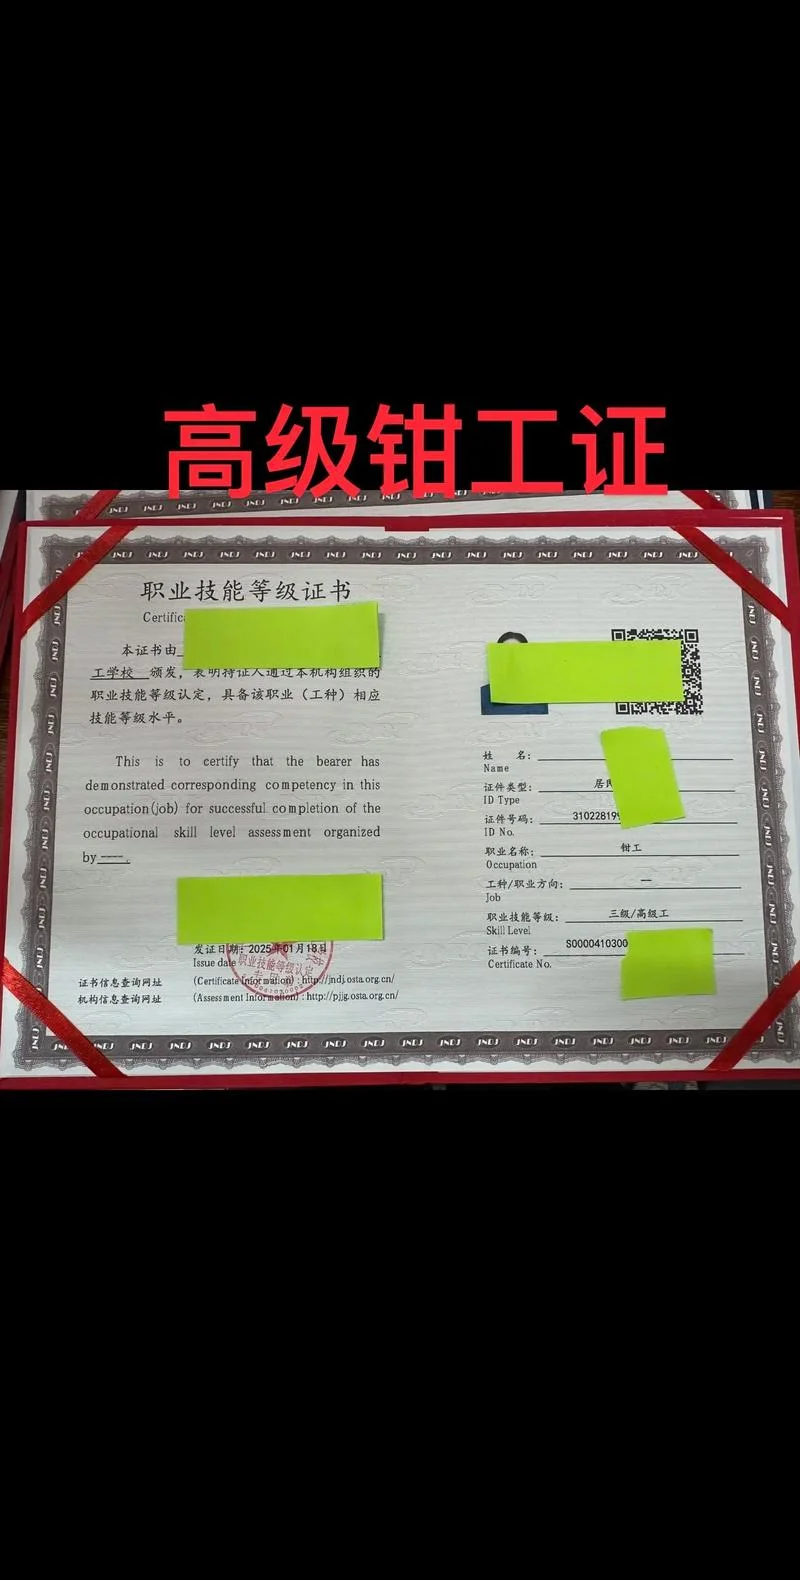 高级钳工证
JNDJ JNDJ JNDJ JNDJ JNDJ JNDJ JNDJ JNDJ JNDJ
职业技能等级证书
Certific
本证书由
工学校 颁发，表明持证人通过本机构组织的
职业技能等级认定，具备该职业（工种）相应
技能等级水平。
This is to certify that the bearer has
demonstrated corresponding competency in this
occupation(job) for successful completion of the
occupational skill level assessment organized
by ----.
发证日期：2025年01月18日
Issue date
职业技能等级认定
证书信息查询网址 (Certificate Information) : http://jndj.osta.org.cn/
机构信息查询网址 (Assessment Information) : http://pjjg.osta.org.cn/
姓 名：
Name
证件类型： 居民
ID Type
证件号码： 31022819
ID No.
职业名称： 钳工
Occupation
工种/职业方向： —
Job
职业技能等级： 三级/高级工
Skill Level
证书编号： S0000410300
Certificate No.